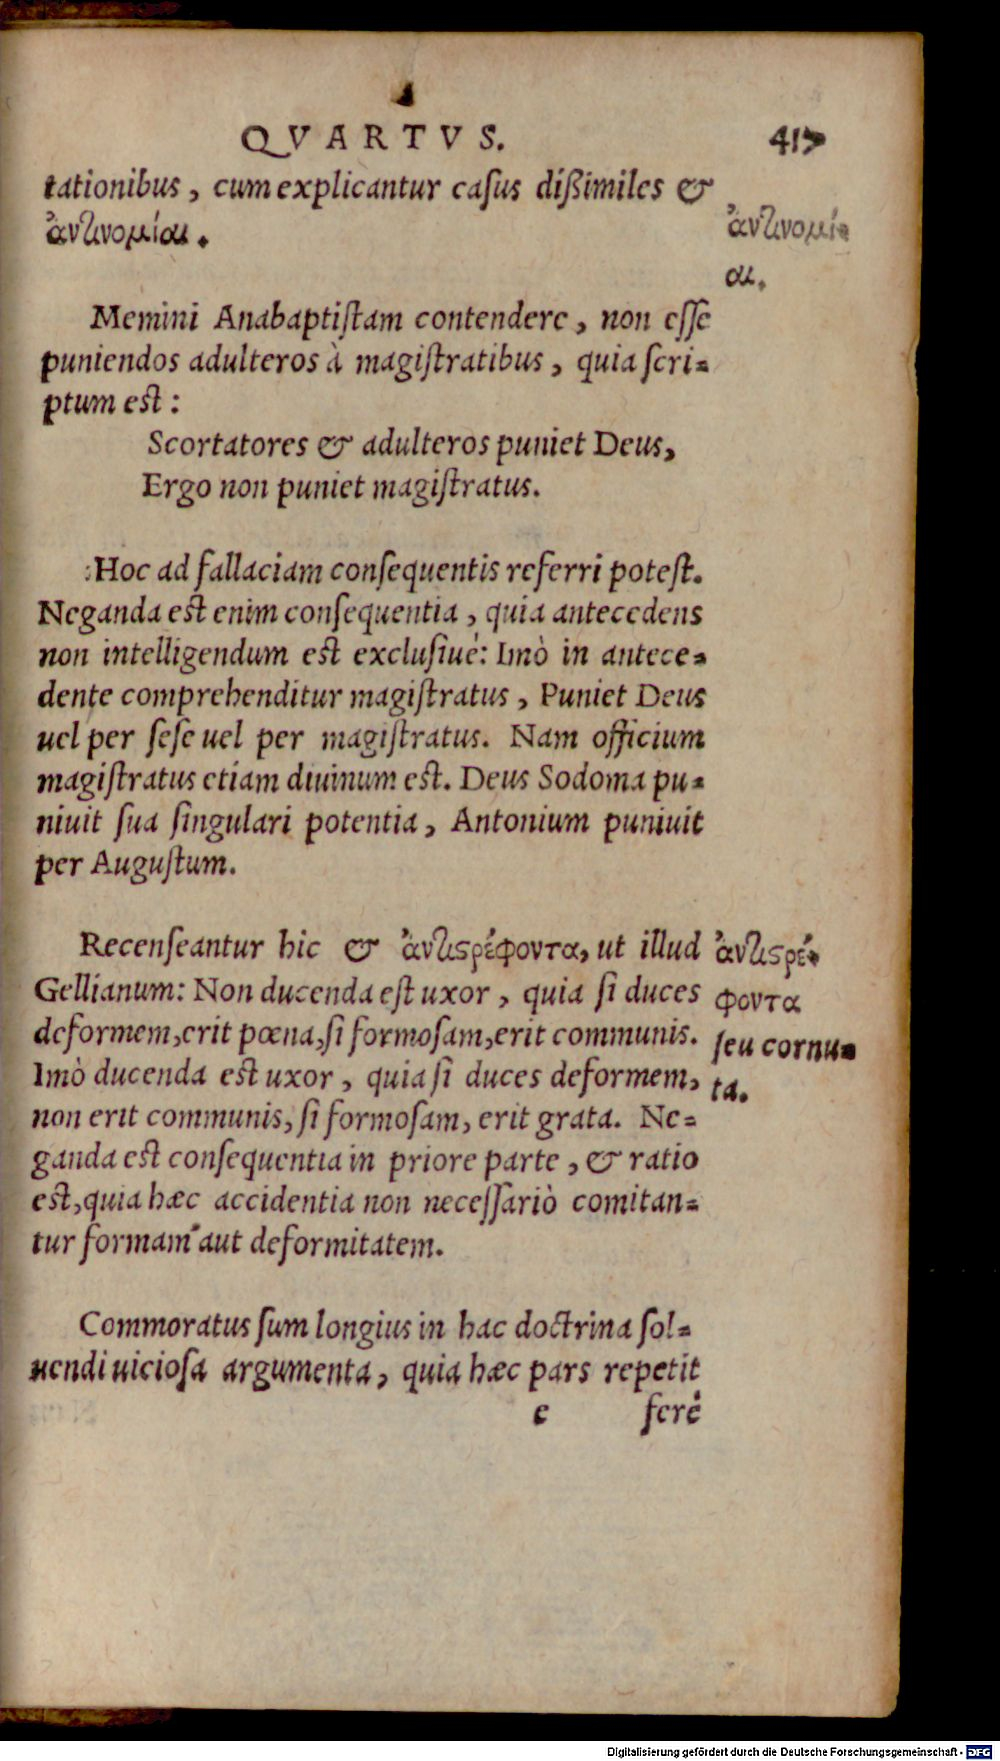 QVARTVS. 417
tationibus, cum explicantur caſus dißimiles &
ἀντινομίαι.
ἀντινομί-
αι.
Memini Anabaptiſtam contendere, non eſſe
puniendos adulteros à magiſtratibus, quia ſcri-
ptum eſt:
Scortatores & adulteros puniet Deus,
Ergo non puniet magiſtratus.
Hoc ad fallaciam conſequentis referri poteſt.
Neganda eſt enim conſequentia, quia antecedens
non intelligendum eſt excluſiuè: Imò in antece-
dente comprehenditur magiſtratus, Puniet Deus
uel per ſeſe uel per magiſtratus. Nam officium
magiſtratus etiam diuinum eſt. Deus Sodoma pu-
niuit ſua ſingulari potentia, Antonium puniuit
per Auguſtum.
Recenſeantur hic & ἀντιςρέφοντα, ut illud
Gellianum: Non ducenda eſt uxor, quia ſi duces
deformem, erit pœna, ſi formoſam, erit communis.
Imò ducenda eſt uxor, quia ſi duces deformem,
non erit communis, ſi formoſam, erit grata. Ne-
ganda eſt conſequentia in priore parte, & ratio
eſt, quia hæc accidentia non neceſſariò comitan-
tur formam aut deformitatem.
ἀντιςρέ-
φοντα
ſeu cornu-
ta.
Commoratus ſum longius in hac doctrina ſol-
uendi uicioſa argumenta, quia hæc pars repetit
e ferè
Digitalisierung gefördert durch die Deutsche Forschungsgemeinschaft - DFG